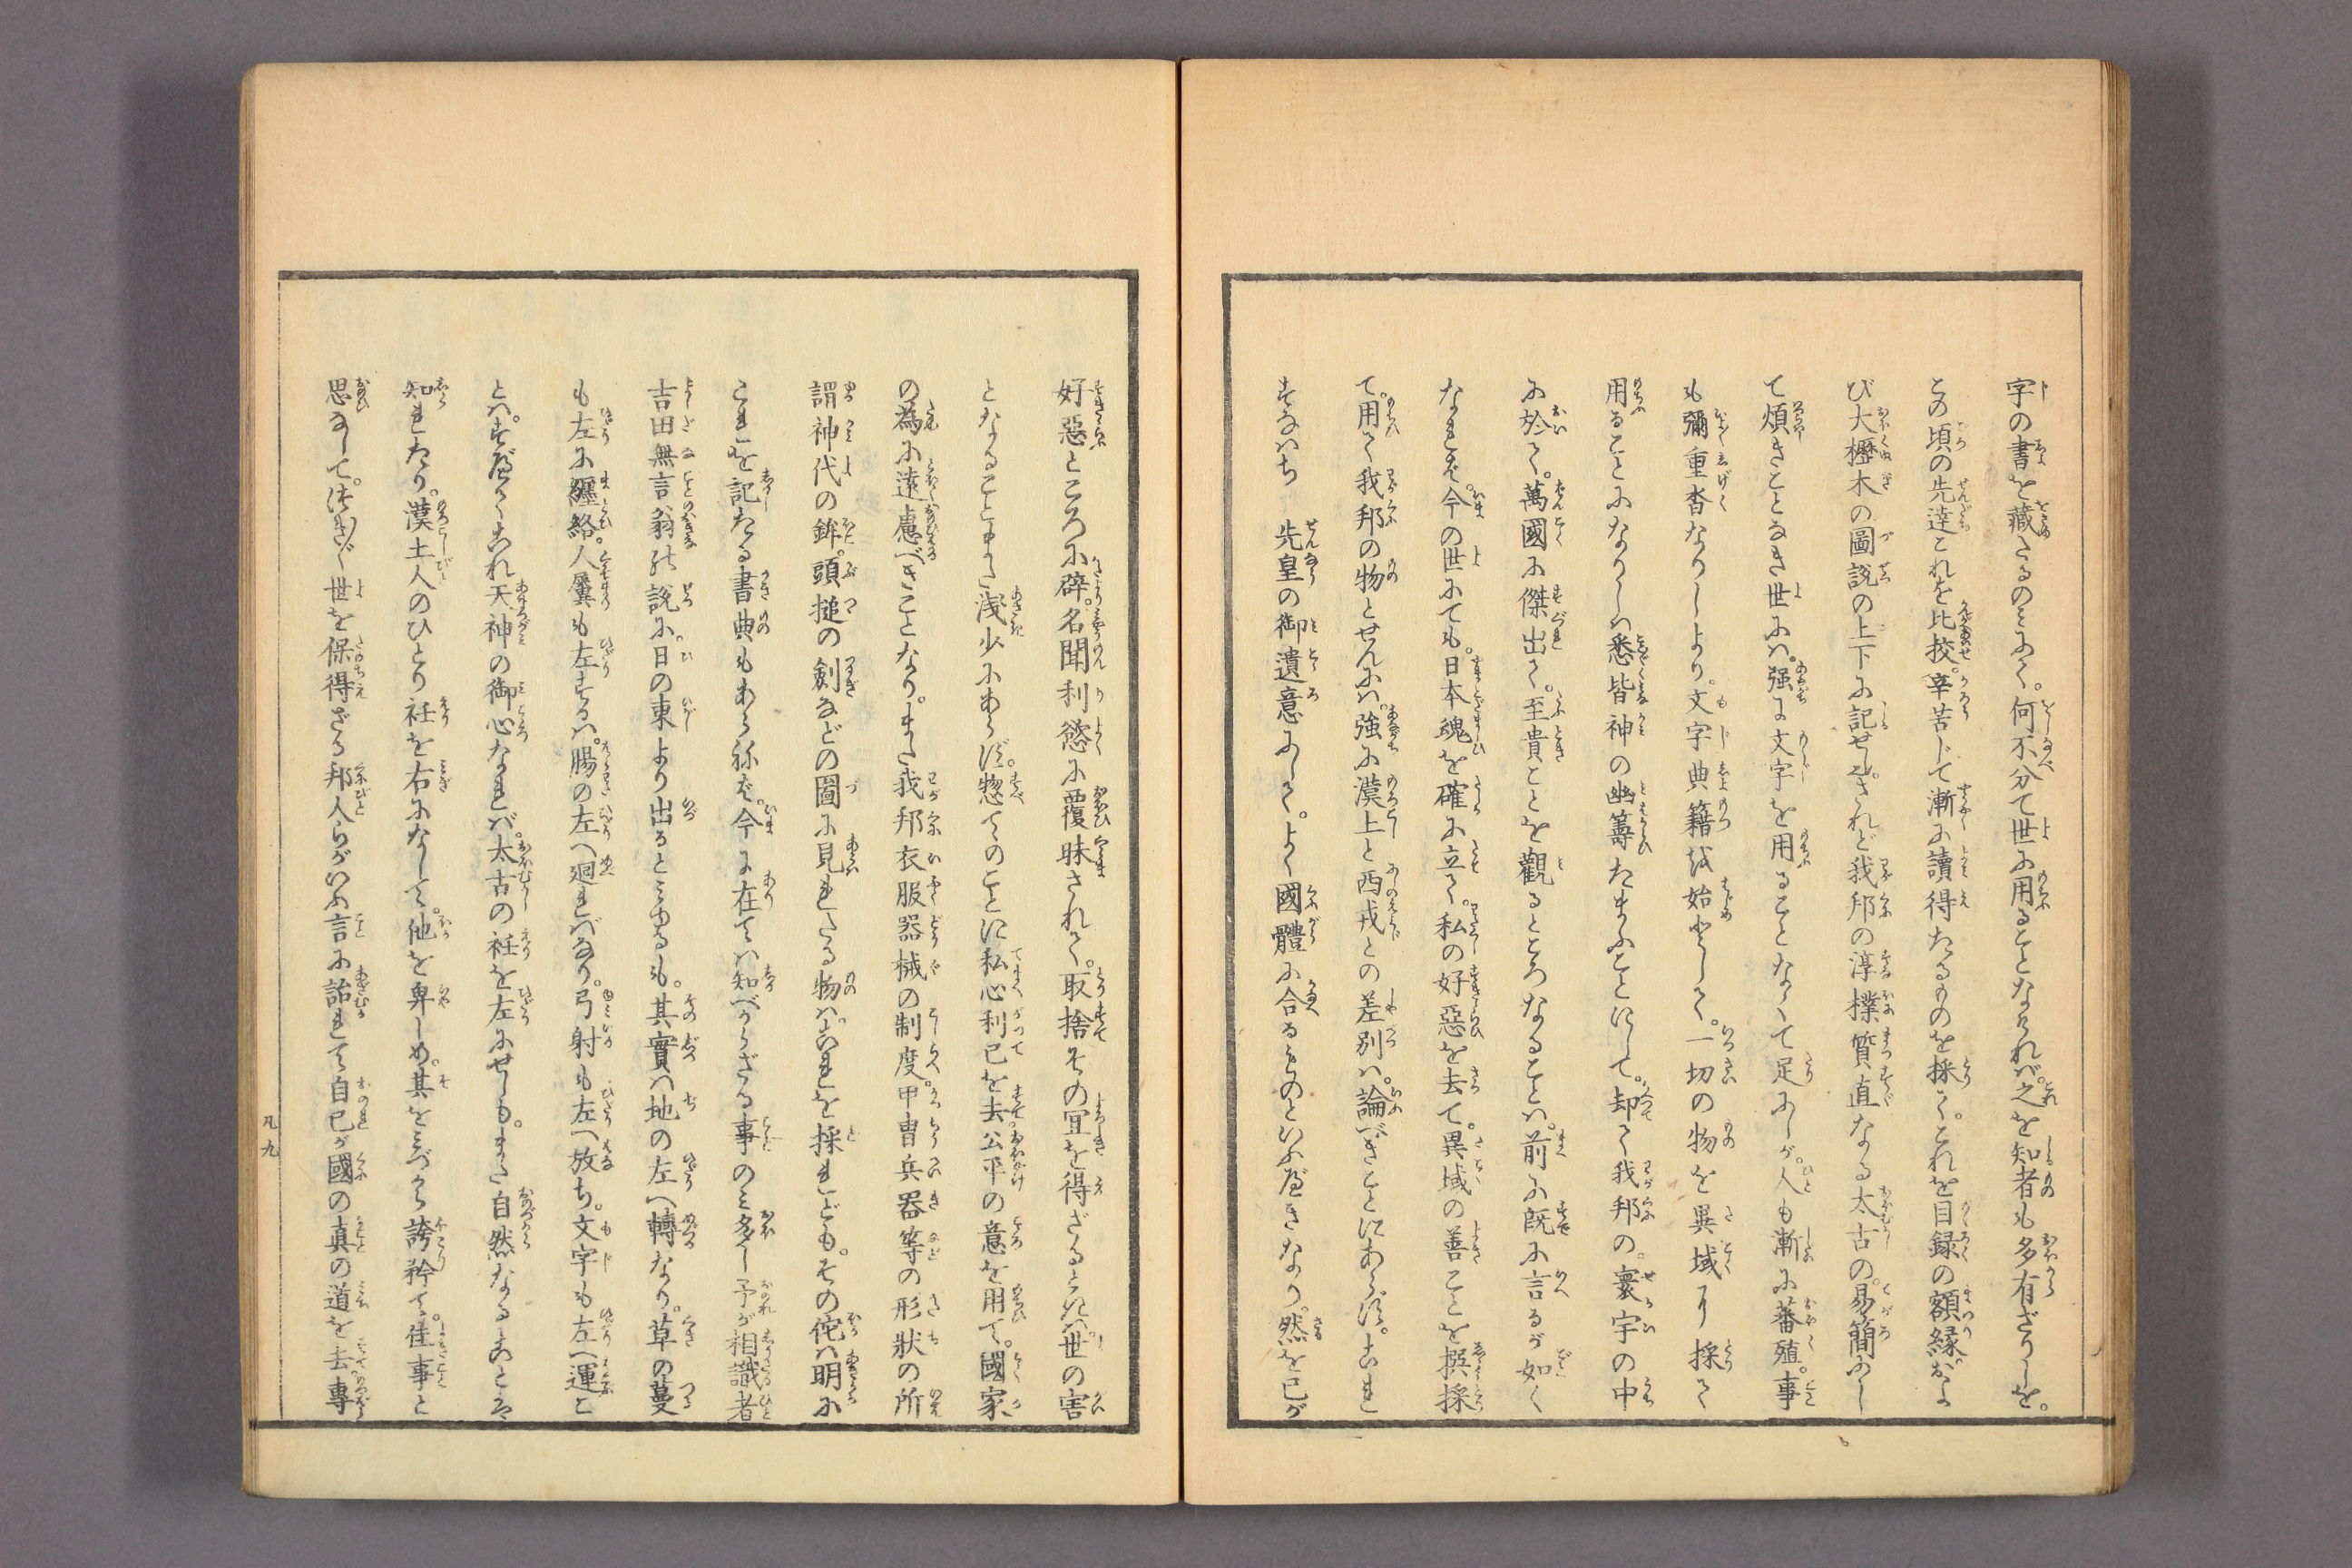 字の書を藏さるのみにて。何不分て世に用ることなければ。之を知者も多有ざりしを。
この頃の先達これを比挍。辛苦じて漸に讀得たるものを採て。これを目録の額縁。およ
び大櫪木の圖説の上下に記せし。されど我邦の淳撲質直なる太古の。易簡にし
て煩きことなき世にハ。强に文字を用ることなくて足にしが。人も漸に蕃殖。事
も彌重沓なりしより。文字典籍を始として。一切の物を異域より採て
用ることになりしハ悉皆神の幽籌たまふことにして。却て我邦の。寰宇の中
に於て。萬國に傑出て。至貴ことを觀るところなることハ。前に既に言るが如く
なれど。今の世にても。日本魂を確に立て。私の好惡を去て。異域の善ことを撰採
て。用て我邦の物とせんにハ。強に漢土と西戎との差別ハ。論べきことにあらず。これ
すなハち　先皇の御遺意にして。よく國體に合るものといふべきなり。然を己が
好惡ところに僻。名聞利慾に覆昧されて。取捨その宜を得ざるときハ。世の害
となることまた淺少にあらず。惣てのことに私心利己を去。公平の意を用て。國家
の為に遠慮べきことなり。また我邦衣服器械の制度。甲冑兵器等の形狀の所
謂神代の鉾。頭搥の劍などの圖に見れたる物ハ。これを採れども。その佗ハ明に
これを記たる書典もあらねば。今に在てハ知べからざる事のみ多し予が相識者
吉田無言翁の説に。日の東より出るとみゆるも。其實ハ地の左へ轉なり。草の蔓
も左に纒絡。人屬も左するハ。腸の左へ廻ればなり。弓射も左へ放ち。文字も左へ運こ
とハ。すべてこれ天神の御心なれば。太古の衽を左にせしも。また自然なることゝハ
知れたり。漢土人のひとり衽を右になして。他を卑しめ。其をみづから誇矜て。佳事と
思なして。つきづき世を保得ざる邦人らがいふ言に諂れて自己が國の真の道を去。專
凡九